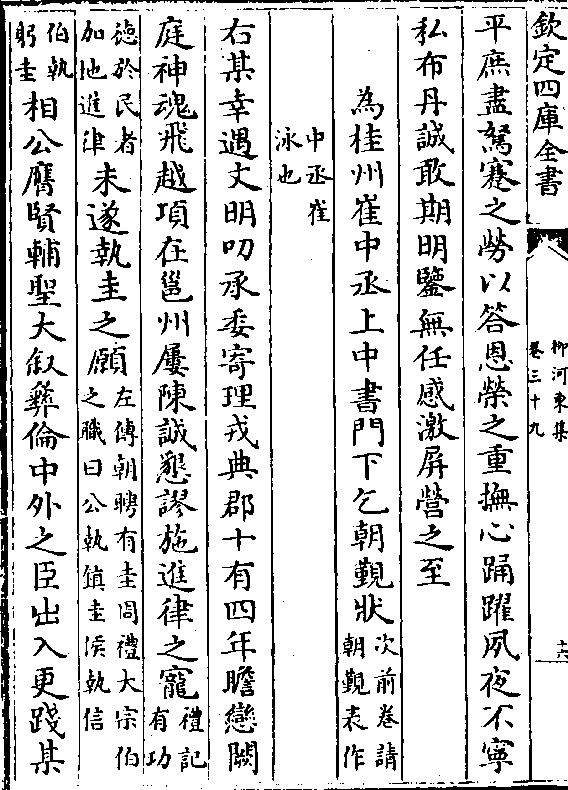 欽定四庫全書
柳河東集
卷三十九
十六
平庶盡駑蹇之勞以答恩榮之重撫心踊躍夙夜不寧
私布丹誠敢期明鑒無任感激屏營之至
為桂州崔中丞上中書門下乞朝覲狀次前卷請朝覲表作
中丞崔泳也
右某幸遇文明叨承委寄理戎典郡十有四年瞻戀闕
庭神魂飛越項在邕州屢陳誠懇謬施進律之寵禮記有功
德於民者加地進律未遂執圭之願左傳朝聘有圭周禮大宗伯之職曰公執鎮圭侯執信
伯執躬圭相公膺賢輔聖大叙彝倫中外之臣出入更踐某